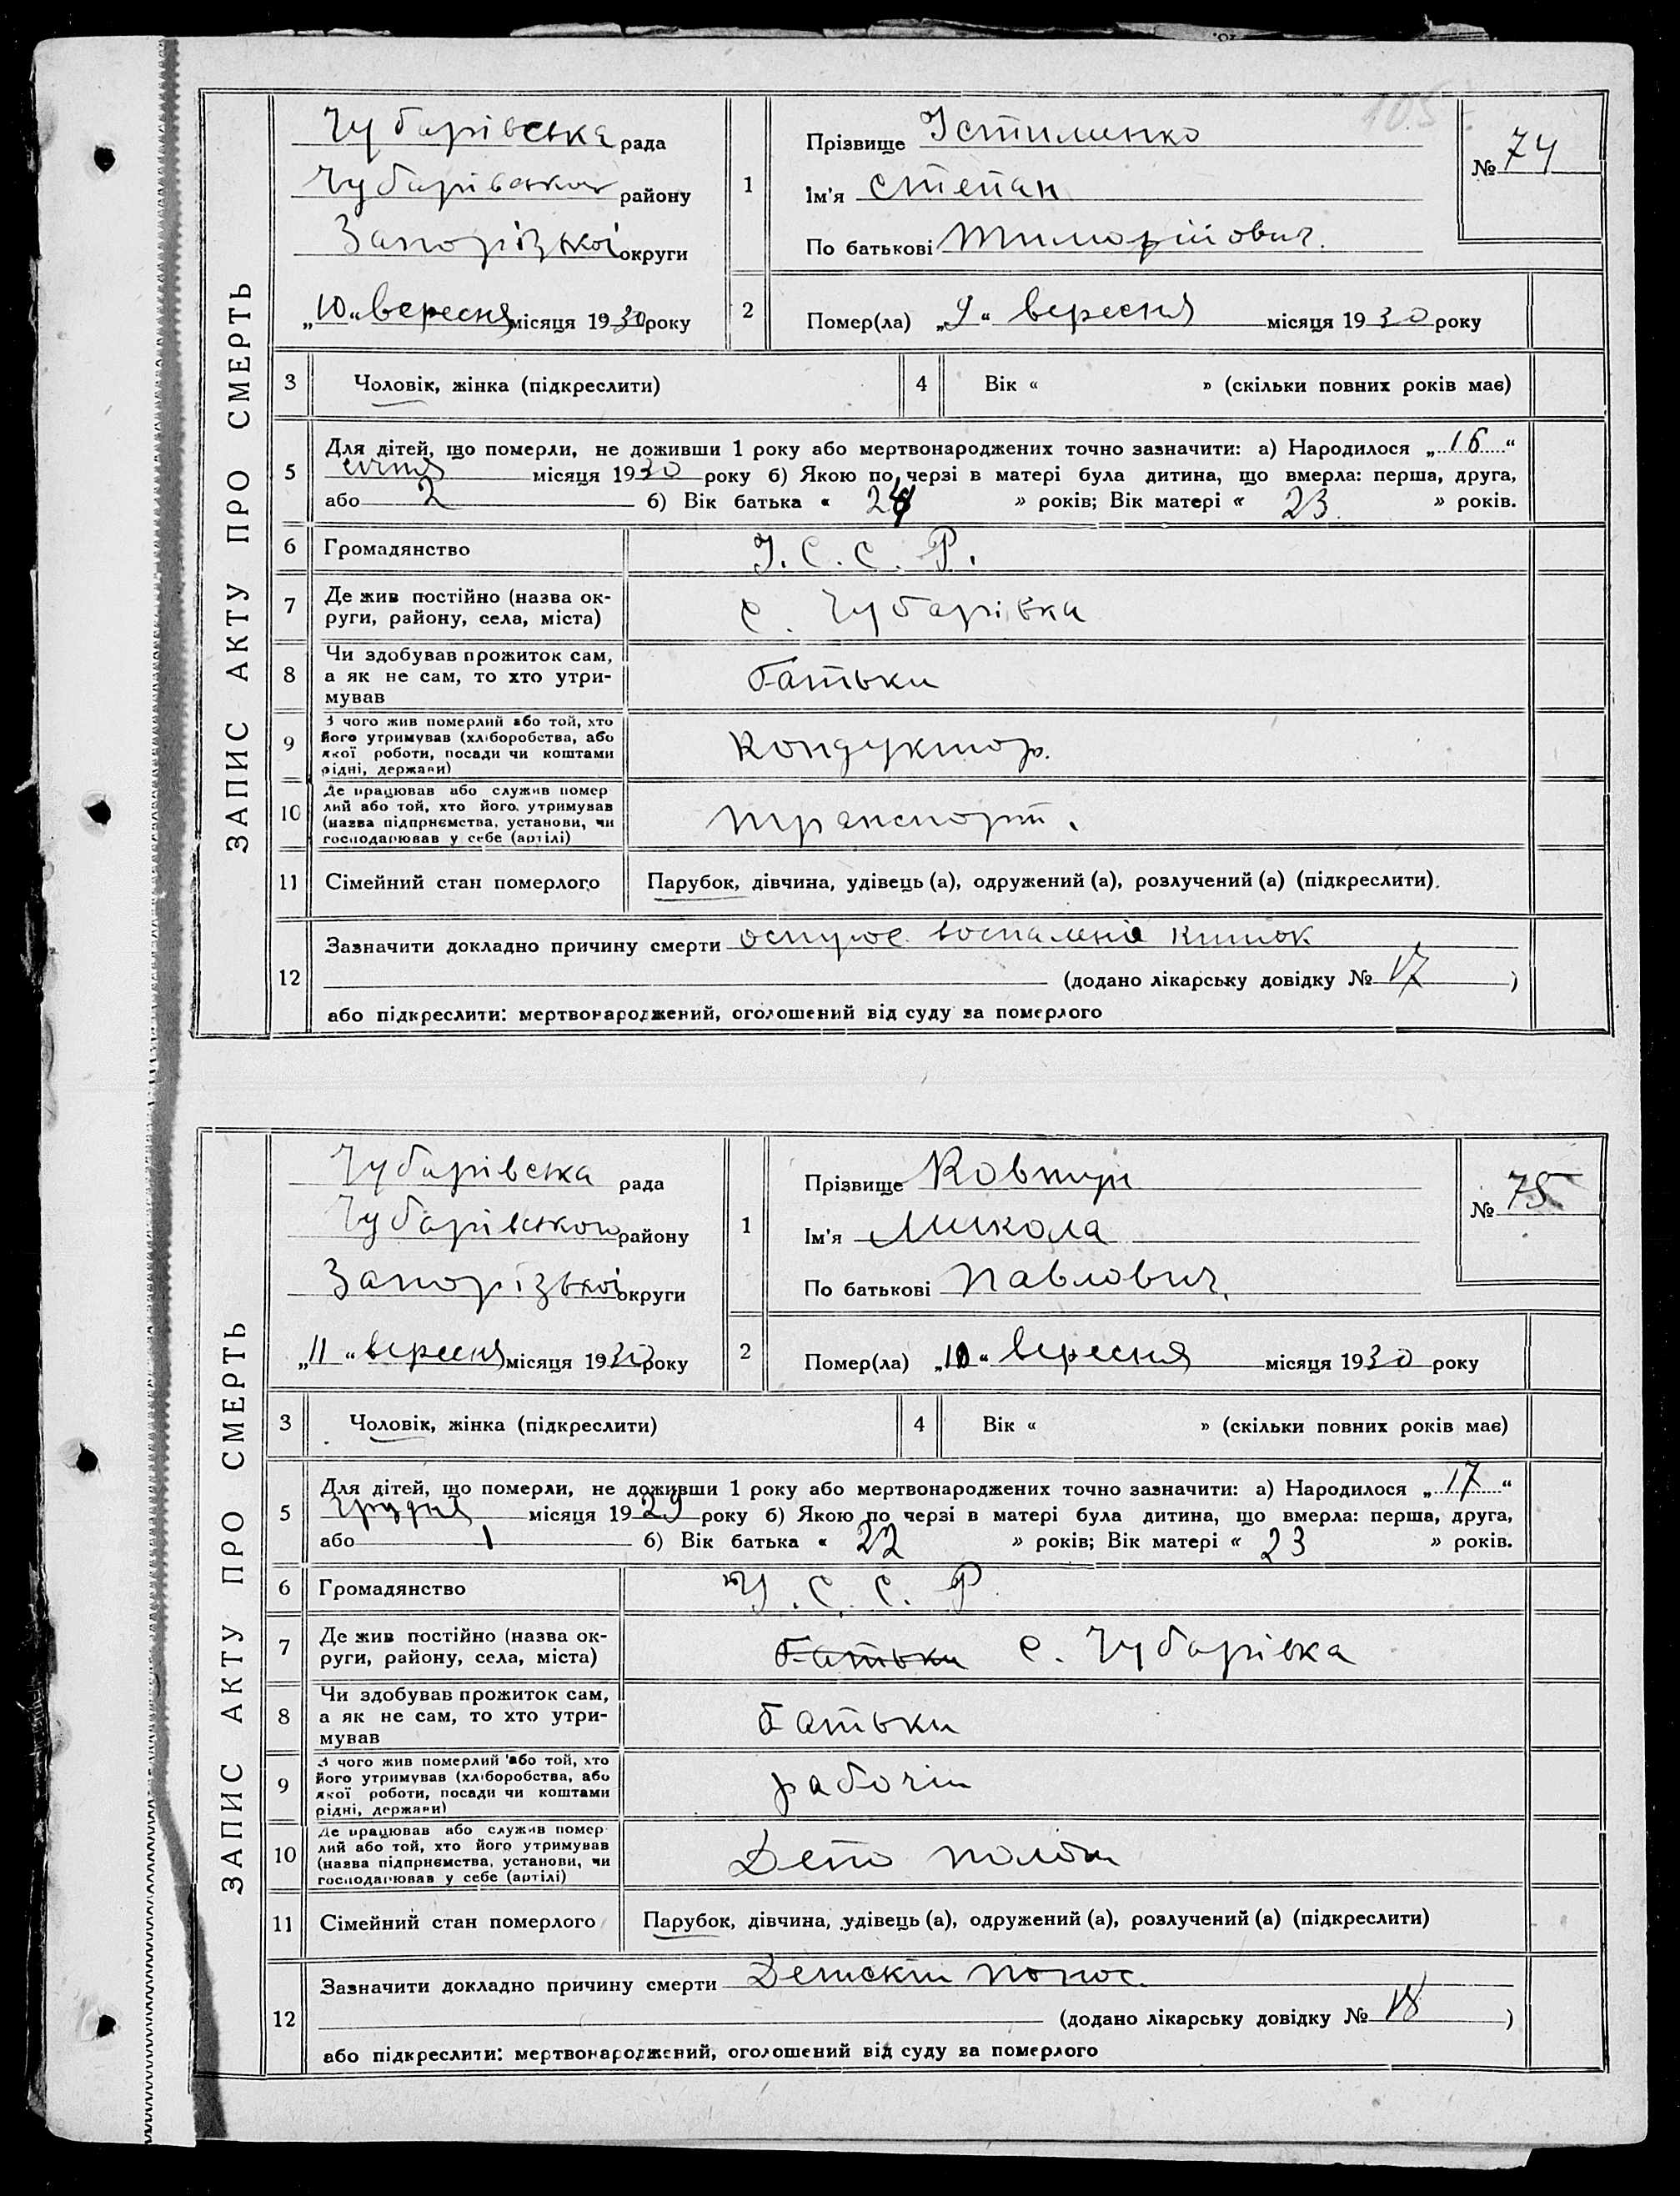 105
ЗАПИС АКТУ ПРО СМЕРТЬ
Чубарівська рада
Чубарівського району
Запорізької округи
„10“ вересня місяця 1930 року
1
Прізвище Устименко
Ім'я Степан
По батькові Тимофійович.
№ 74
2
Помер(ла) „9“ вересня місяця 1930 року
3 Чоловік, жінка (підкреслити)
4 Вік « » (скільки повних років має)
5
Для дітей, що померли, не доживши 1 року або мертвонароджених точно зазначити: а) Народилося „16“
місяця 1930 року б) Якою по черзі в матері була дитина, що вмерла: перша, друга,
або 2 б) Вік батька « » років; Вік матері « 23 » років.
6 Громадянство У. С. С. Р.
7 Де жив постійно (назва ок-
руги, району, села, міста) с. Чубарівка
8 Чи здобував прожиток сам,
а як не сам, то хто утри-
мував Батьки
9 З чого жив померлий або той, хто
його утримував (хліборобства, або
якої роботи, посади чи коштами
рідні, держави) Кондуктор.
10 Де працював або служив помер-
лий або той, хто його утримував
(назва підприємства, установи, чи
господарював у себе (артілі) Транспорт.
11 Сімейний стан померлого Парубок, дівчина, удівець (а), одружений (а), розлучений (а) (підкреслити).
12
Зазначити докладно причину смерти острое воспаление кишок
(додано лікарську довідку № 17 )
або підкреслити: мертвонароджений, оголошений від суду за померлого
ЗАПИС АКТУ ПРО СМЕРТЬ
Чубарівська рада
Чубарівського району
Запорізької округи
„11“ вересня місяця 1930 року
1
Прізвище Ковтун
Ім'я Микола
По батькові Павлович.
№ 75
2
Помер(ла) „10“ вересня місяця 1930 року
3 Чоловік, жінка (підкреслити)
4 Вік « » (скільки повних років має)
5
Для дітей, що померли, не доживши 1 року або мертвонароджених точно зазначити: а) Народилося „17“
грудня місяця 1929 року б) Якою по черзі в матері була дитина, що вмерла: перша, друга,
або 1 б) Вік батька « 22 » років; Вік матері « 23 » років.
6 Громадянство У. С. С. Р
7 Де жив постійно (назва ок-
руги, району, села, міста) Батьки с. Чубарівка
8 Чи здобував прожиток сам,
а як не сам, то хто утри-
мував Батьки
9 З чого жив померлий або той, хто
його утримував (хліборобства, або
якої роботи, посади чи коштами
рідні, держави) рабочий
10 Де працював або служив помер-
лий або той, хто його утримував
(назва підприємства, установи, чи
господарював у себе (артілі) Депо
11 Сімейний стан померлого Парубок, дівчина, удівець (а), одружений (а), розлучений (а) (підкреслити)
12
Зазначити докладно причину смерти Детский понос.
(додано лікарську довідку № 18 )
або підкреслити: мертвонароджений, оголошений від суду за померлого